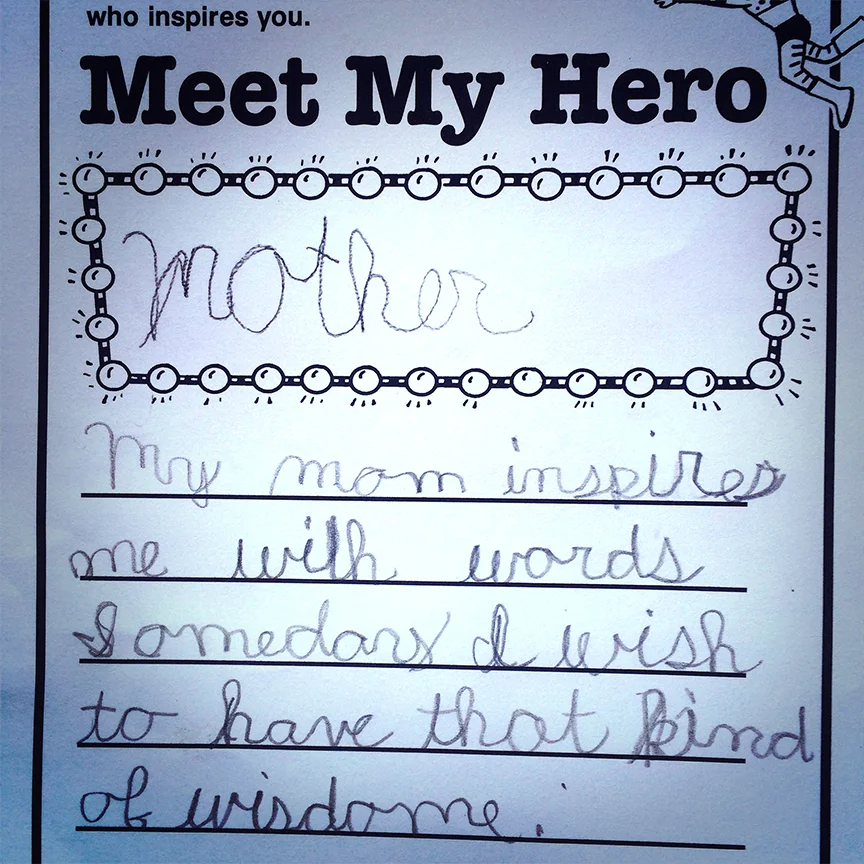 who inspires you.
Meet My Hero
Mother
My mom inspires
me with words
Someday I wish
to have that kind
of wisdome.